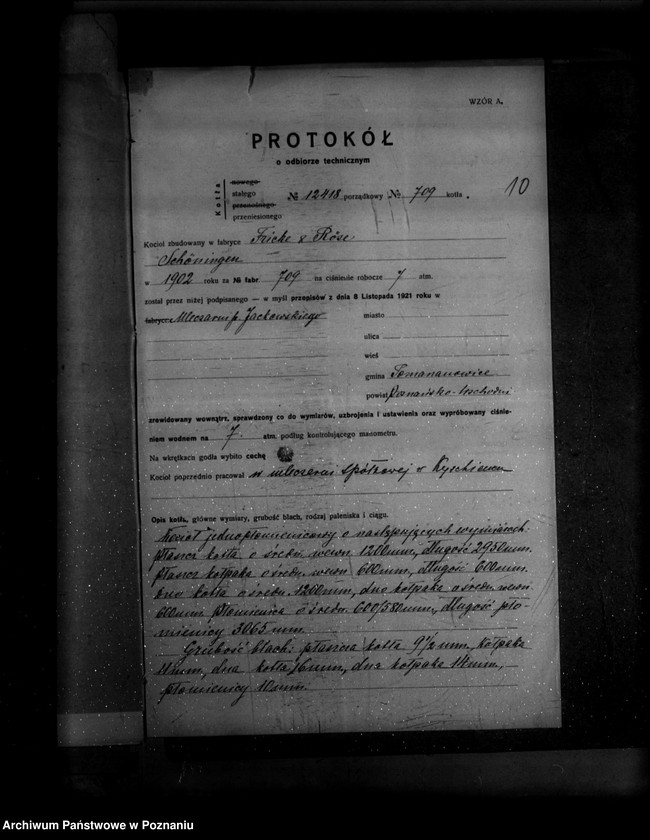 WZÓR A.
PROTOKÓŁ
o odbiorze technicznym
10
Kotła
nowego
stałego
przenośnego
przeniesionego
№ 12418 porządkowy № 709 kotła.
Kocioł zbudowany w fabryce Fricke & Röse
Schöningen
w 1902 roku za № fabr 709 na ciśnienie robocze 7 atm.
został przez niżej podpisanego — w myśl przepisów z dnia 8 Listopada 1921 roku w
fabryce Mleczarni p. Jackowskiego
miasto
ulica
wieś
gmina
powiat Poznańsko-wschodni
zrewidowany wewnątrz, sprawdzony co do wymiarów, uzbrojenia i ustawienia oraz wypróbowany ciśnie-
niem wodnem na 7. atm. podług kontrolującego manometru.
Na wkrętkach godła wybito cechę
Kocioł poprzednio pracował w mleczarni spółkowej w
Opis kotła, główne wymiary, grubość blach, rodzaj paleniska i ciągu.
Kocioł jednopłomienicowy o następujących wymiarach:
płaszcz kotła o średn. wewn. 1200mm, długość 2950mm.
płaszcz kołpaka o średn. wewn 600mm, długość 600mm.
dno kotła o średn. 1200mm, dno kołpaka o średn. wewn.
600mm. Płomienica o średn. 600/580mm, długość pło-
mienicy 3065 mm.
Grubość blach: płaszcza kotła 9½ mm, kołpaka
11mm, dna kotła 16mm, dna kołpaka 14mm,
płomienicy 10mm.
Archiwum Państwowe w Poznaniu